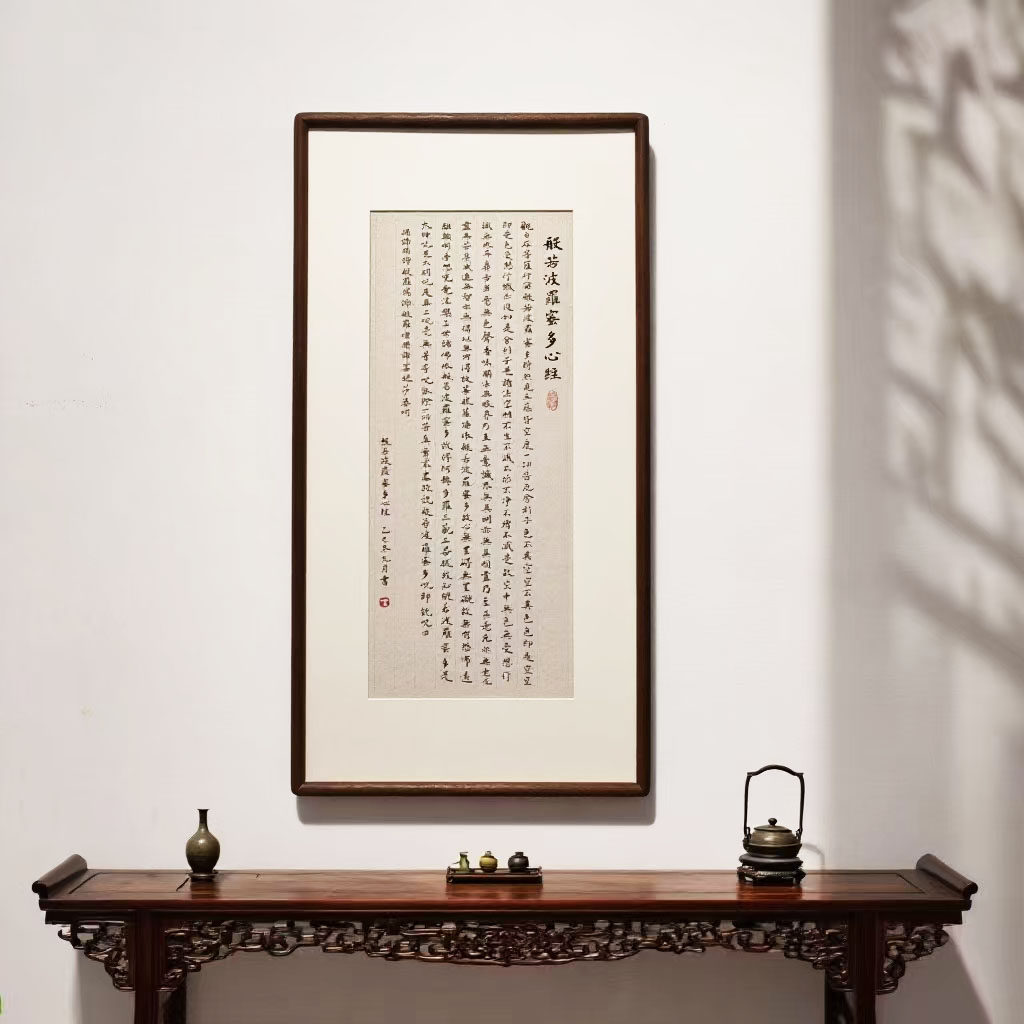 般若波羅蜜多心經
觀自在菩薩行深般若波羅蜜多時照見五蘊皆空度一切苦厄舍利子色不異空空不異色色即是空空
即是色受想行識亦復如是舍利子是諸法空相不生不滅不垢不淨不增不減是故空中無色無受想行
識無眼耳鼻舌身意無色聲香味觸法無眼界乃至無意識界無無明亦無無明盡乃至無老死亦無老死
盡無苦集滅道無智亦無得以無所得故菩提薩埵依般若波羅蜜多故心無罣礙無罣礙故無有恐怖遠
離顛倒夢想究竟涅槃三世諸佛依般若波羅蜜多故得阿耨多羅三藐三菩提故知般若波羅蜜多是
大神咒是大明咒是無上咒是無等等咒能除一切苦真實不虛故說般若波羅蜜多咒即說咒曰
揭諦揭諦般羅揭諦般羅僧揭諦菩提莎婆訶
般若波羅蜜多心經 乙巳年九月書